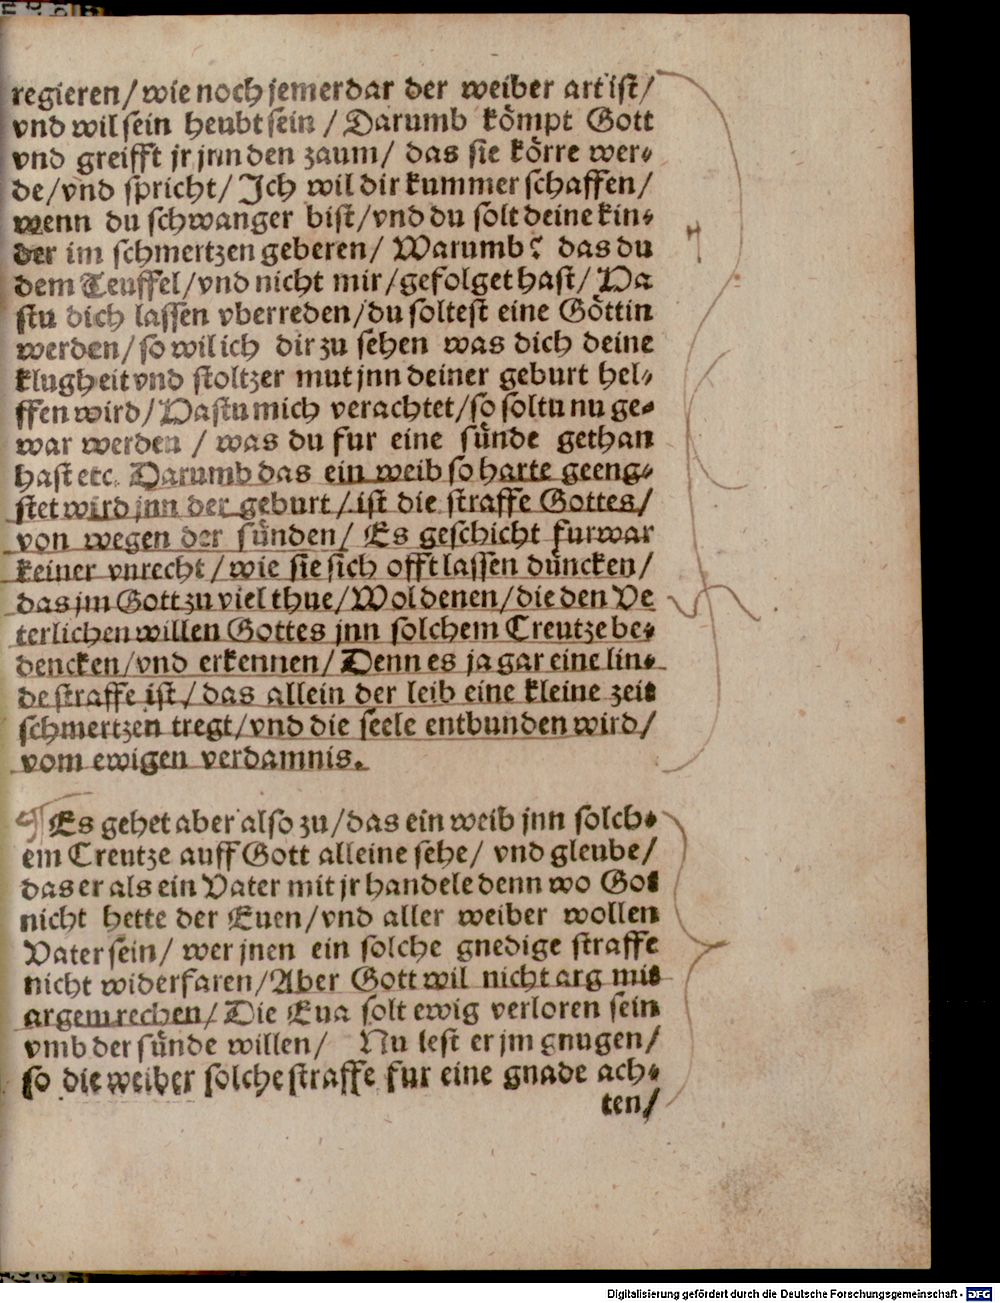 regieren/wie noch jemerdar der weiber art ist/
vnd wil sein heubt sein / Darumb kömpt Gott
vnd greifft jr jnn den zaum/ das sie körre wer⸗
de/vnd spricht/ Ich wil dir kummer schaffen/
wenn du schwanger bist/vnd du solt deine kin⸗
der im schmertzen geberen/ Warumb? das du
dem Teuffel/vnd nicht mir/gefolget hast/ Da
stu dich lassen vberreden/du soltest eine Göttin
werden/ so wil ich dir zu sehen was dich deine
klugheit vnd stoltzer mut jnn deiner geburt hel⸗
ffen wird/ Dastu mich verachtet/so soltu nu ge⸗
war werden / was du fur eine sünde gethan
hast etc. Darumb das ein weib so harte geeng⸗
stet wird jnn der geburt/ist die straffe Gottes/
von wegen der sünden/ Es geschicht furwar
keiner vnrecht/wie sie sich offt lassen düncken/
das jm Gott zu viel thue/Wol denen/die den Ve
terlichen willen Gottes jnn solchem Creutze be⸗
dencken/vnd erkennen/ Denn es ja gar eine lin⸗
de straffe ist/das allein der leib eine kleine zeit
schmertzen tregt/vnd die seele entbunden wird/
vom ewigen verdamnis.
Es gehet aber also zu/das ein weib jnn solch⸗
em Creutze auff Gott alleine sehe/ vnd gleube/
das er als ein Vater mit jr handele denn wo Got
nicht hette der Euen/vnd aller weiber wollen
Vater sein/ wer jnen ein solche gnedige straffe
nicht widerfaren/Aber Gott wil nicht arg mit
argem rechen/ Die Eua solt ewig verloren sein
vmb der sünde willen/ Nu lest er jm gnugen/
so die weiber solche straffe fur eine gnade ach⸗
ten/
Digitalisierung gefördert durch die Deutsche Forschungsgemeinschaft - DFG